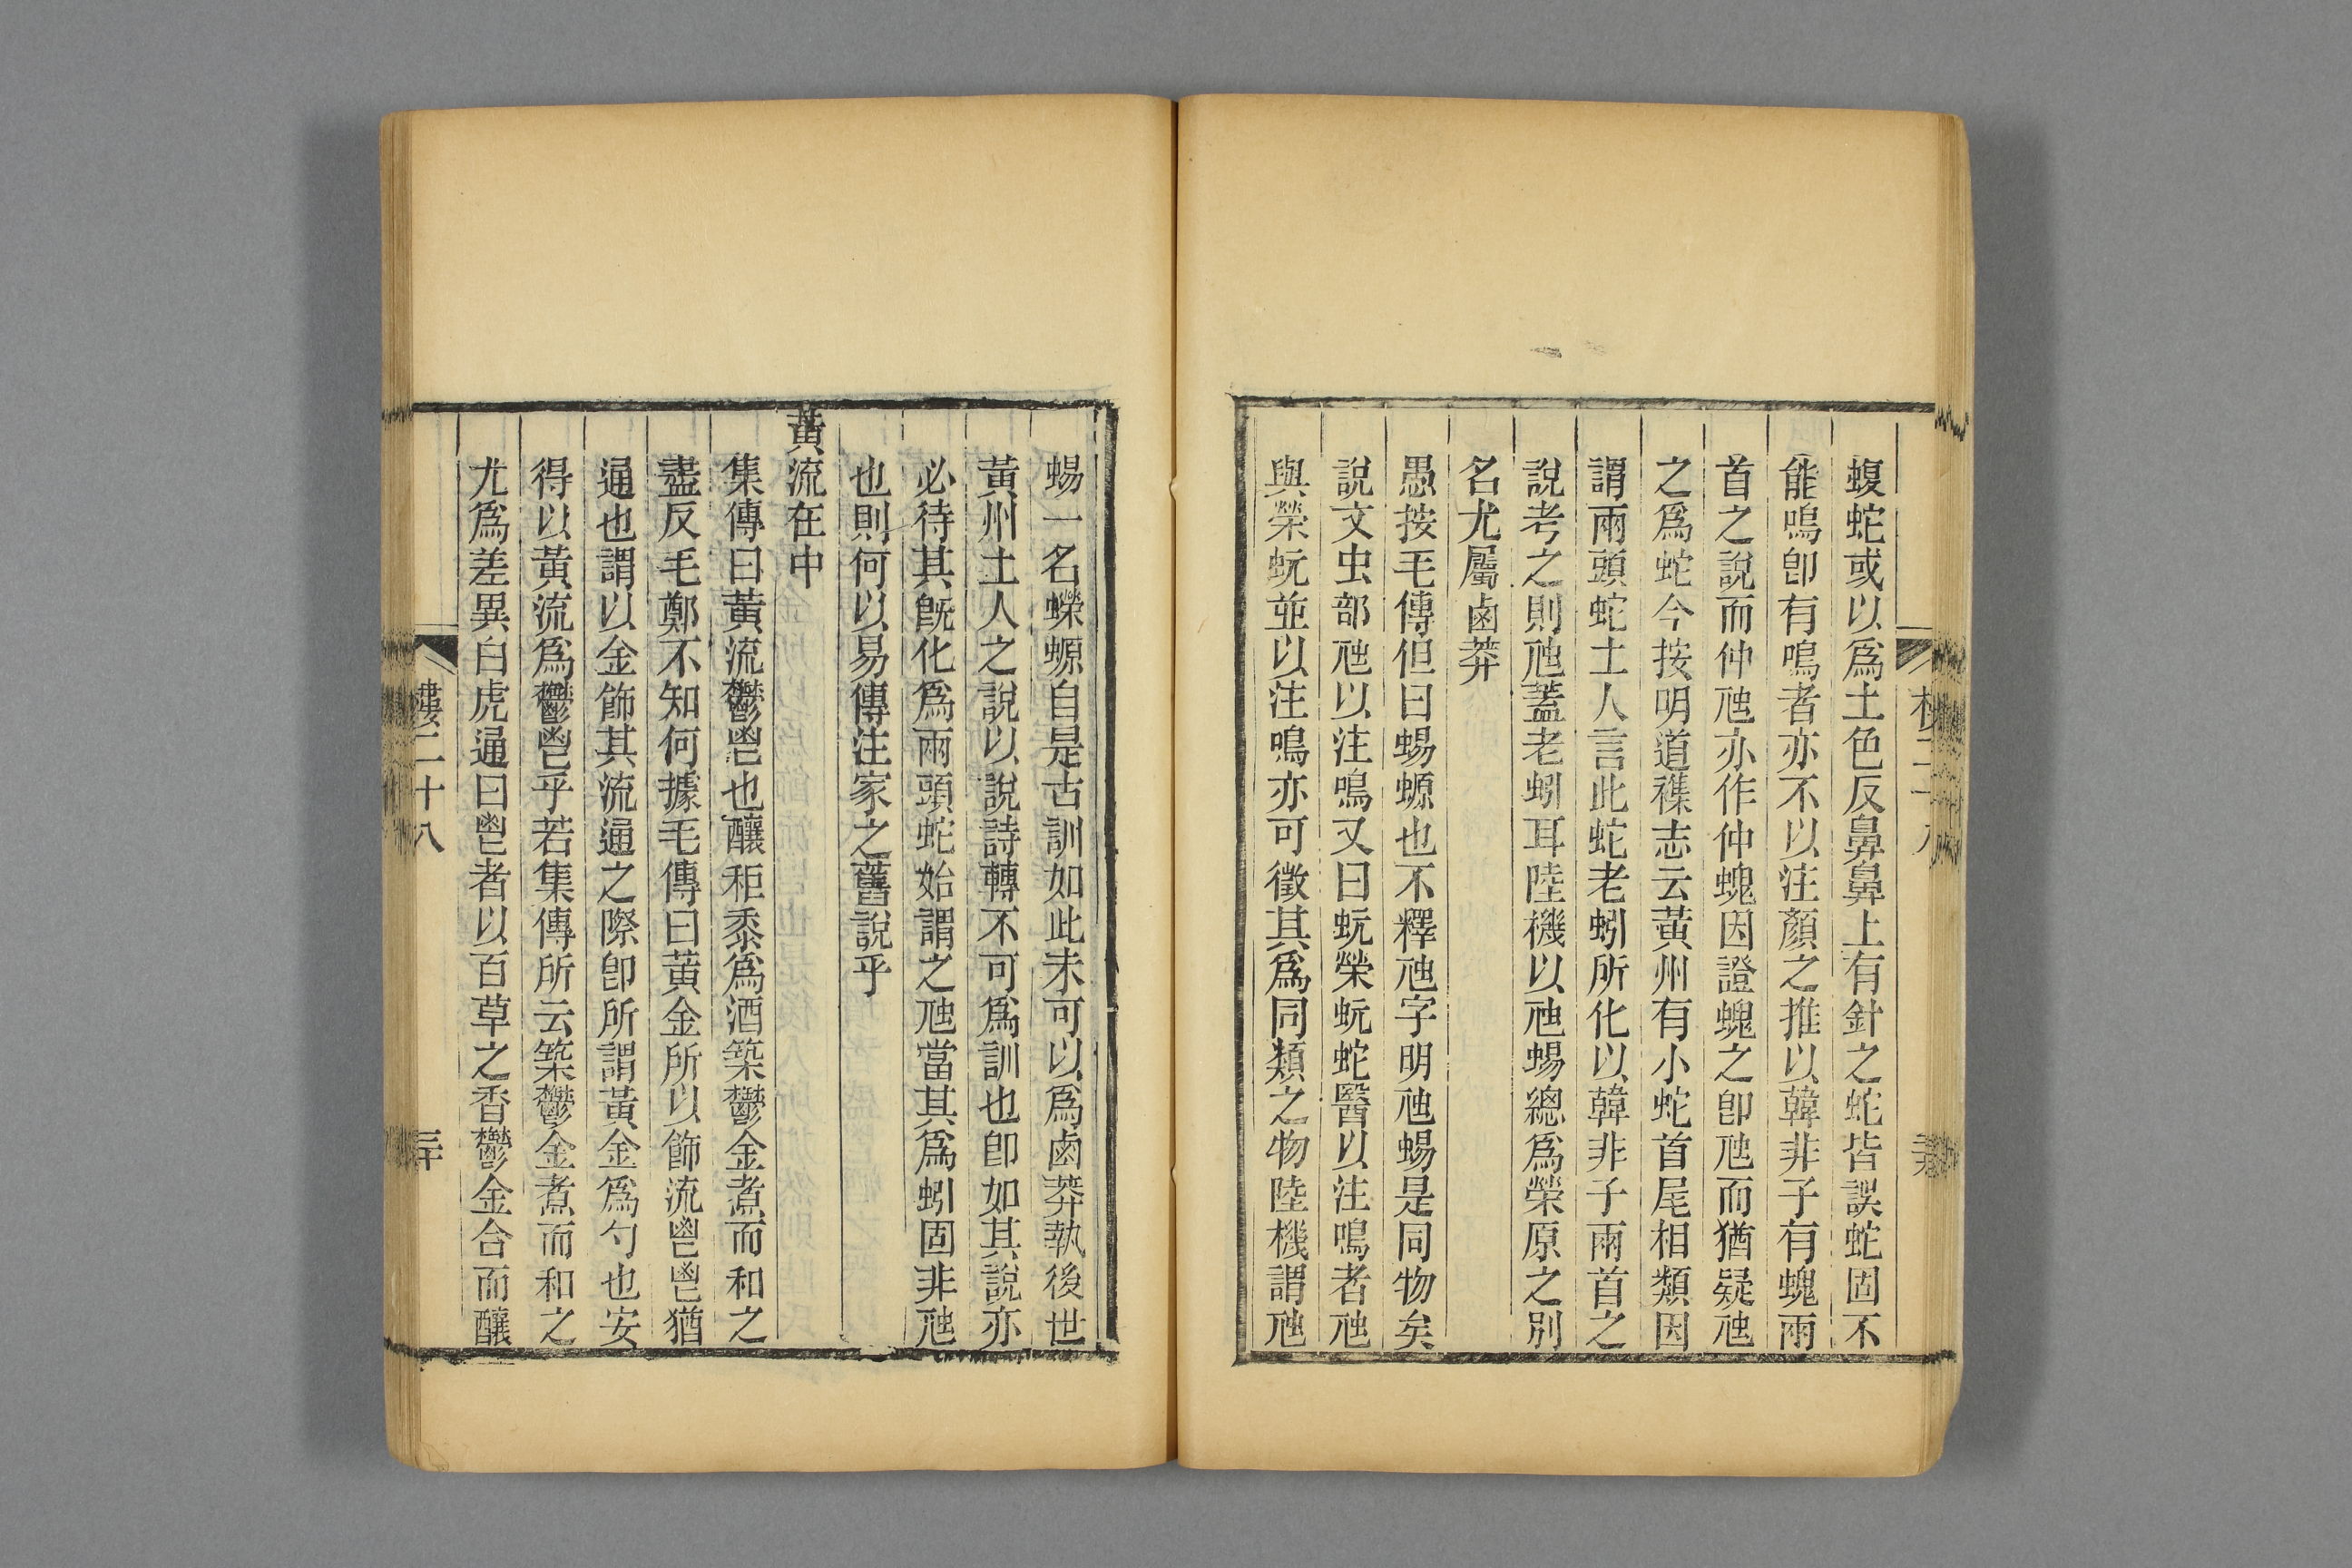 蝮蛇或以爲土色反鼻鼻上有針之蛇皆誤蛇固不
能鳴卽有鳴者亦不以注顏之推以韓非子有螝兩
首之說而仲虺亦作仲螝因證螝之卽虺而猶疑虺
之爲蛇今按明道襍志云黃州有小蛇首尾相類因
謂兩頭蛇土人言此蛇老蚓所化以韓非子兩首之
說考之則虺蓋老蚓耳陸機以虺蜴總爲榮原之別
名尤屬鹵莽
愚按毛傳但曰蜴螈也不釋虺字明虺蜴是同物矣
說文虫部虺以注鳴又曰蚖榮蚖蛇醫以注鳴者虺
與榮蚖並以注鳴亦可徵其爲同類之物陸機謂虺
蜴一名蠑螈自是古訓如此未可以爲鹵莽執後世
黃州土人之說以說詩轉不可爲訓也卽如其說亦
必待其旣化爲兩頭蛇始謂之虺當其爲蚓固非虺
也則何以易傳注家之舊說乎
黃流在中
集傳曰黃流鬱鬯也釀秬黍爲酒築鬱金煮而和之
盡反毛鄭不知何據毛傳曰黃金所以飾流鬯鬯猶
通也謂以金飾其流通之際卽所謂黃金爲勺也安
得以黃流爲鬱鬯乎若集傳所云築鬱金煮而和之
尤爲差異白虎通曰鬯者以百草之香鬱金合而釀
樓二十八
三十